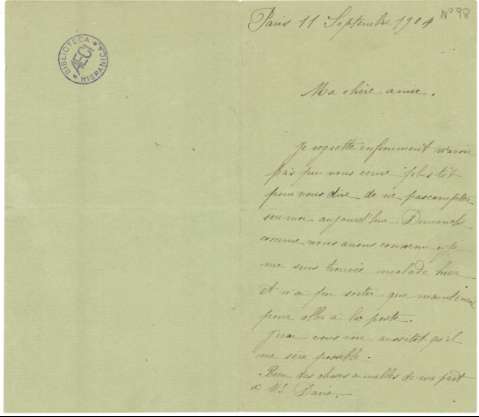 BIBLIOTECA HISPANICA
AECI
Nº 98
Paris 11 Septembre 1904
Ma chère amie.
Je regrette infiniment n'avoir
pas pu vous ecrire plus tôt
pour vous dire de ne pas compter
sur moi aujourd'hui Dimanche
comme nous avions convenu. Je
me suis trouvée malade hier
et n'a pu sortir que maintenant
pour aller à la poste.
J'irai vous voir aussitot qu'il
me sera possible.
Bien des choses aimables de ma part
à Mr